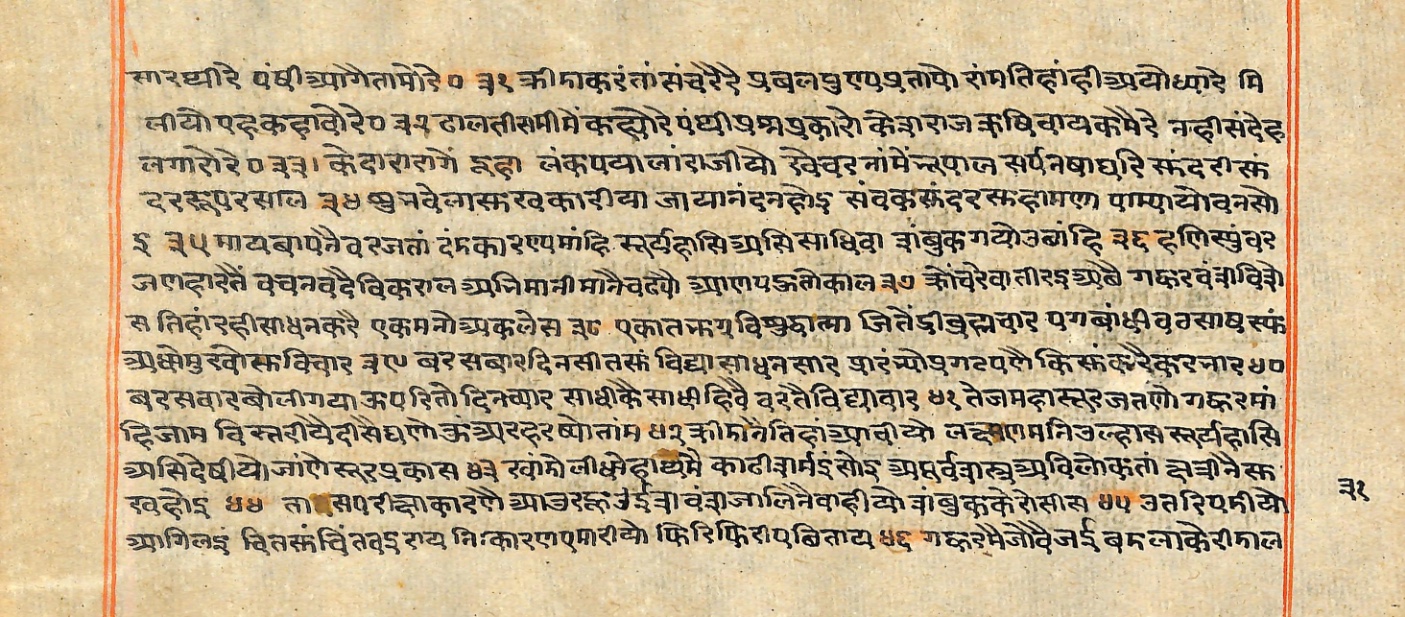 सारथीरे पंषीआगैतामोरे० ३१ क्रीडाकरंतां संचरैरे प्रबलपुण्यप्रतापो रांमतिहांहीअयोध्यारे मि
लीयो एहकहावोरे० ३२ ढालतीसमीमें कह्योरे पंथीप्रश्नप्रकारो केशराजऋषिरायकमैरे नहीसंदेह
लगारोरे० ३३। केदारारागें दूहा लंकपयालांराजीयो खेचरनांमें सर्पनषाघरि सुंदरी सुं
दररूपरसाल ३४ शुभवेलासुखकारीया जायानंदनहोइ संबुकसुंदरसुहामणा पांम्यायोवनसो
इ ३५ मायबापनैवरजतां दंडकारण्यमांहि सूर्यहासिअसिसाधिवा शंबुकगयोउबांहि ३६ हणिस्युंवर
जणहारतैं वचनवदैविकराल अभिमानीमानैचढ्यो आण्यपहुतोकाल ३७ क्रोंचरेवातीरइअछै गह्वरवंशविशे
स तिहांरहीसाधनकरै एकमनोअकलेस ३८ एकातभयविशुद्धात्मा जितेंद्रीब्रह्मचार पगबांधीवडसाषसुं
अधोमुखोसुविचार ३९ बरसबारदिनसातसुं विद्यासाधनसार प्रारंभ्योप्रगटपणै किसुंकरैकरतार ४०
बरसबारबोलीगया ऊपरितोदिनच्यार साधीकैसाधीहिवै वरतैविद्यावार ४१ तेजमहासूरजतणो गह्वरमां
हिजाम विस्तरीयैदीसैघणो ऊंअरहरष्योताम ४२ क्रीडानैतिहांआवीयो लक्ष्मणमनिउल्हास सूर्यहासि
असिदेषीयो जांणेसूरप्रकास ४३ खांडोलीधोहाथमै काढीशर्मइंसोइ अपूर्वशस्त्रअविलोकतां क्षत्रीनैसु
खहोइ ४४ तासपरीक्षाकारणै आउरहूउईश वंशजालिनैवाहीयो शंबुककेरोसीस ४५ उतरिपडीयो
आगिलइं चितसुंचिंतवइराय निःकारणएमारीयो फिरिफिरीपछिताय ४६ गह्वरमैजोवैजई बडलाकेरीडाल
३१